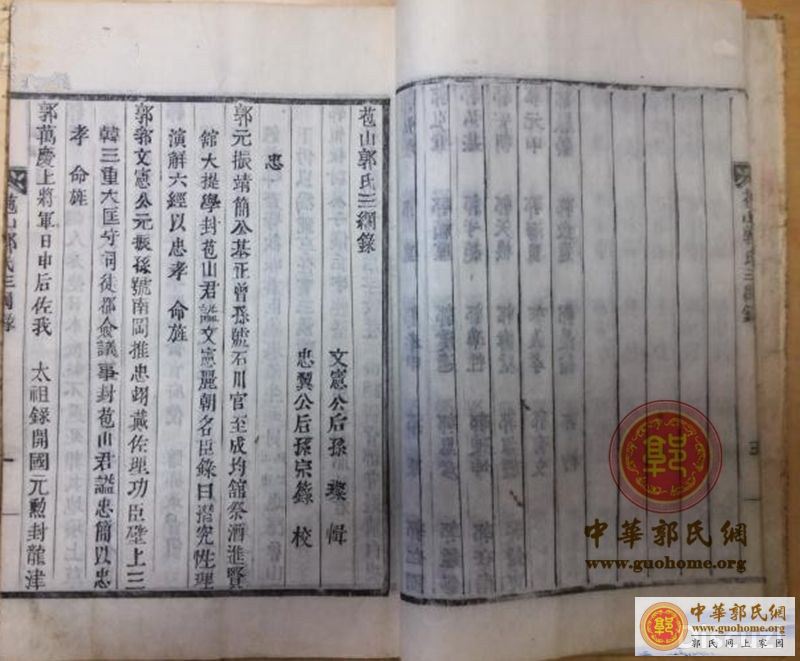 苞山郭氏三綱錄
三
苞山郭氏三綱錄
文憲公后孫 璨 輯
忠翼公后孫宗 校
忠
郭元振靖簡公基正曾孫號石川官至成均舘祭酒進賢
舘大提學封苞山君謚文憲麗朝名臣錄曰潜究性理
演解六經以忠孝 命旌
郭郛文憲公元振孫號南岡推忠翊戴佐理功臣壁上三
韓三重大匡守司徒都僉議事封苞山君謚忠簡以忠
孝 命旌
郭萬慶上將軍日申后佐我 太祖錄開國元勲封龍津
苞山郭氏三綱錄
一
郭
中華郭氏網
www.guohome.org
郭
中華郭氏網
www.guohome.org
郭氏网上家园